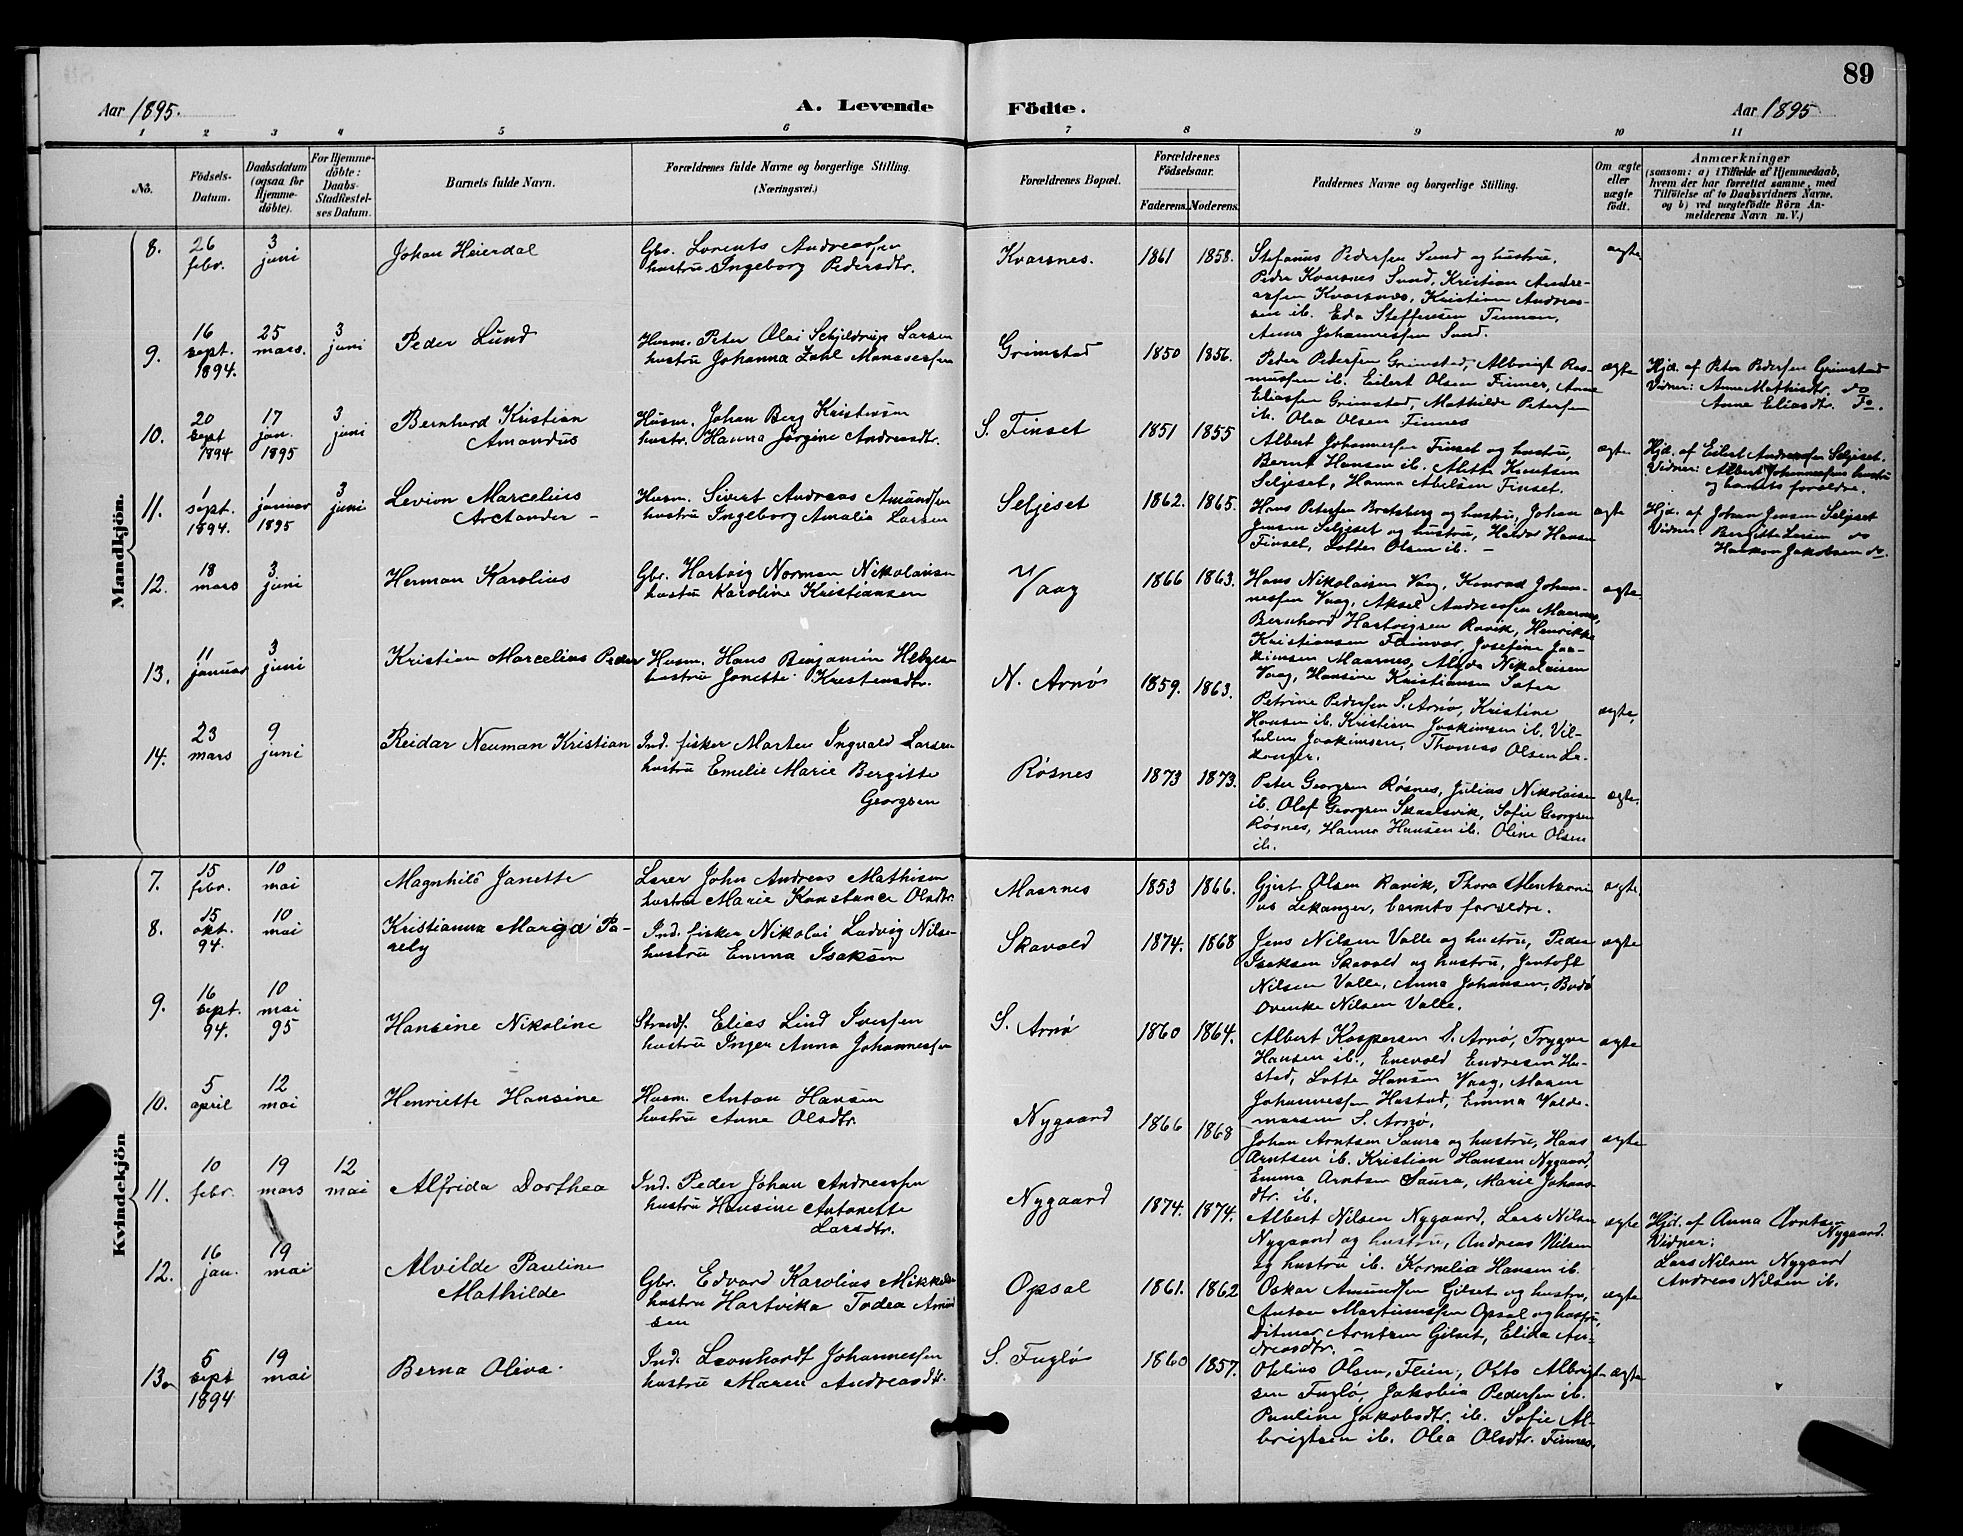 89
Aar 1895.
A. Levende Födte.
Aar 1895
1 2 3 4 5 6 7 8 9 10 11
No.
Födsels-
Datum.
Daabsdatum
(ogsaa for
Hjemme-
döbte).
For Hjemme-
döbte:
Daabs-
Stadfæstel-
ses Datum.
Barnets fulde Navn.
Forældrenes fulde Navne og borgerlige Stilling.
(Næringsvei.)
Forældrenes Bopæl.
Forældrenes
Födselsaar.
Faderens. Moderens.
Faddernes Navne og borgerlige Stilling.
Om ægte
eller
uægte
födt.
Anmærkninger
(saasom: a) i Tilfælde af Hjemmedaab,
hvem der har forrettet samme, med
Tilföielse af to Daabsvidners Navne.
og b) ved uægtefödte Börn An-
melderens Navn m. V.)
Mandkjön.
8.
26
febr.
3
juni
Johan Heierdal
Gbr. Lorents Andreassen
hustru Ingeborg Pedersdtr.
Kvarsnes.
1861 1858.
Stefanus Pedersen Sund og hustru,
Peder Kvarsnes Sund, Kristian Andre-
assen Kvarsnes, Kristian Andreas-
sen ib. Eda Steffensen
Anna Johannessen Sund.
ægte
9.
16
sept.
1894.
25
mars.
3
juni
Peder Lund
Husm. Peter Olai Schjeldrup Larsen
hustru Johanna Zahl Manassessen
Grimstad
1850 1856.
Peder Petersen Grimstad, Albrigt Ras-
mussen ib. Eilert Olsen Finnes, Anne
Eliassen Grimstad, Mathilde Petersen
ib. Olea Olsen Finnes
ægte
Hjd. af Peter Pedersen Grimstad
Vidner: Anne Mathisdtr. do
Anne Eliasdtr. do.
10.
20
sept
1894
17
jan.
1895
3
juni
Bernhard Kristian
Amandus
Husm. Johan Berg Kristensen
hustr. Hanna Jørgine Andreasdtr.
S. Finset
1851 1855
Albert Johannessen Finset og hustru,
Bernt Hansen ib. Alette Knutsen
Seljeset, Hanna Abelsen Finset.
ægte
Hjd. af Eilert Andreassen Seljeset.
Vidner: Albert Johannessens hustru
og barnets forældre.
11.
1
sept.
1894.
1
januar
1895
3
juni
Levion Marcelius
Arctander –
Husm. Sivert Andreas Amundsen
hustru Ingeborg Amalie Larsen
Seljeset
1862. 1865.
Hans Petersen Bratsberg og hustru, Johan
Jensen Seljeset og hustru, Haldor Hansen
Finset, Lotte Olsen ib. –
ægte
Hjd. af Johan Jensen Seljeset
Vidner: Bergitte do
Haakon Jakobsen do.
12.
18
mars
3
juni
Herman Karolius
Gbr. Hartvig Norman Nikolaisen
hustru Karoline Kristiansen
Vaag
1866 1863.
Hans Nikolaisen Vaag, Konrad Johan-
nessen Vaag, Aksel Andreassen Maarnes,
Bernhard Hartvigsen Ravik, Henrikke
Kristiansen Fleinvær, Josefine Joa-
kimsen Maarnes, Alvda Nikolaisen
Vaag, Hansine Kristiansen Sater
ægte
13.
11
januar
3
juni
Kristian Marcelius Peder
Husm. Hans Benjamin
hustru Janette Kristensdtr.
N. Arnø
1859. 1863.
Petrine Pedersen S. Arnø, Kristine
Hansen ib. Kristian Joakimsen ib. Vil-
helm Joakimsen, Thomas Olsen Le-
kanger.
ægte,
14.
23
mars
9
juni
Reidar Neuman Kristian
Ind. fisker Marten Ingvald Larsen
hustru Emelie Marie Bergitte
Georgsen
Røsnes
1873 1873.
Peter Georgsen Røsnes, Julius Nikolaisen
ib. Olaf Georgsen Skaalsvik, Sofie Georgsen
Røsnes, Hanna Hansen ib. Oline Olsen
ib.
ægte.
Kvindekjön
7.
15
febr.
10
mai
Magnhild Janette
Lærer John Andreas Mathisen
hustru Marie Konstance Olsdtr.
Maarnes
1853 1866.
Gjert Olsen Ravik, Thora
Lekanger, barnets forældre.
ægte
8.
15
okt.
94.
10
mai
Kristianna Margit Pa-
rely
Ind. fisker Nikolai Ludvig Nilse-
hustru Emma Isaksen
Skavold
1874. 1868
Jens Nilsen Valle og hustru, Peder
Isaksen Skavold og hustru, Jentoft
Nilsen Valle, Anna Johansen, Bodø
Ovenke Nilsen Valle.
ægte
9.
16
sept.
94.
10
mai
95
Hansine Nikoline
Strands. Elias Lind Iversen
hustru Inger Anna Johannessen
S. Arnø
1860 1864.
Albert Kaspersen S. Arnø, Trygve
Hansen ib., Enevold Endresen Hu-
stad, Lotte Hansen Vaag, Maren
Johannessen Hustad, Emma Valde-
marsen S. Arnø.
ægte
10.
5
april
12
mai
Henriette Hansine
Husm. Anton Hansen
hustru Anne Olsdtr.
Nygaard
1866 1868
Johan Arntsen Saura og hustru, Hans
Arntsen ib. Kristian Hansen Nygaard,
Emma Arntsen Saura, Marie Johans-
dtr. ib.
ægte
11.
10
febr.
19
mars
12
mai
Alfrida Dorthea
Ind. Peder Johan Andreassen
hustru Hansine Antonette
Larsdtr.
Nygaard
1874. 1874.
Albert Nilsen Nygaard, Lars Nilsen
Nygaard og hustru, Andreas Nilsen
og hustru ib. Kornelia Hansen ib.
ægte
Hjd. af Anna Arntsen
Nygaard.
Vidner:
Lars Nilsen Nygaard
Andreas Nilsen ib.
12.
16
jan.
19
mai
Alvilde Pauline
Mathilde
Gbr. Edvard Karolius Mikkelse
hustru Hartvika Todea Amund
sen
Opsal
1861. 1862
Oskar Amundsen Gilset og hustru,
Anton Martinussen Opsal og hustru,
Ditmar Arntsen Gilset, Elida An-
dreasdtr.
ægte
13.
5
sept
1894
19
mai
Berna Oliva.
Ind. Leonhardt Johannessen
hustru Maren Andreasdtr.
S. Fuglø
1860 1857.
Otelius Olsen, Flein, Otto Albrigt-
sen Fuglø, Jakobia Pedersen ib.
Pauline Jakobsdtr. ib. Sofie Al-
brigtsen ib. Olea Olsdtr. Finnes.
ægte